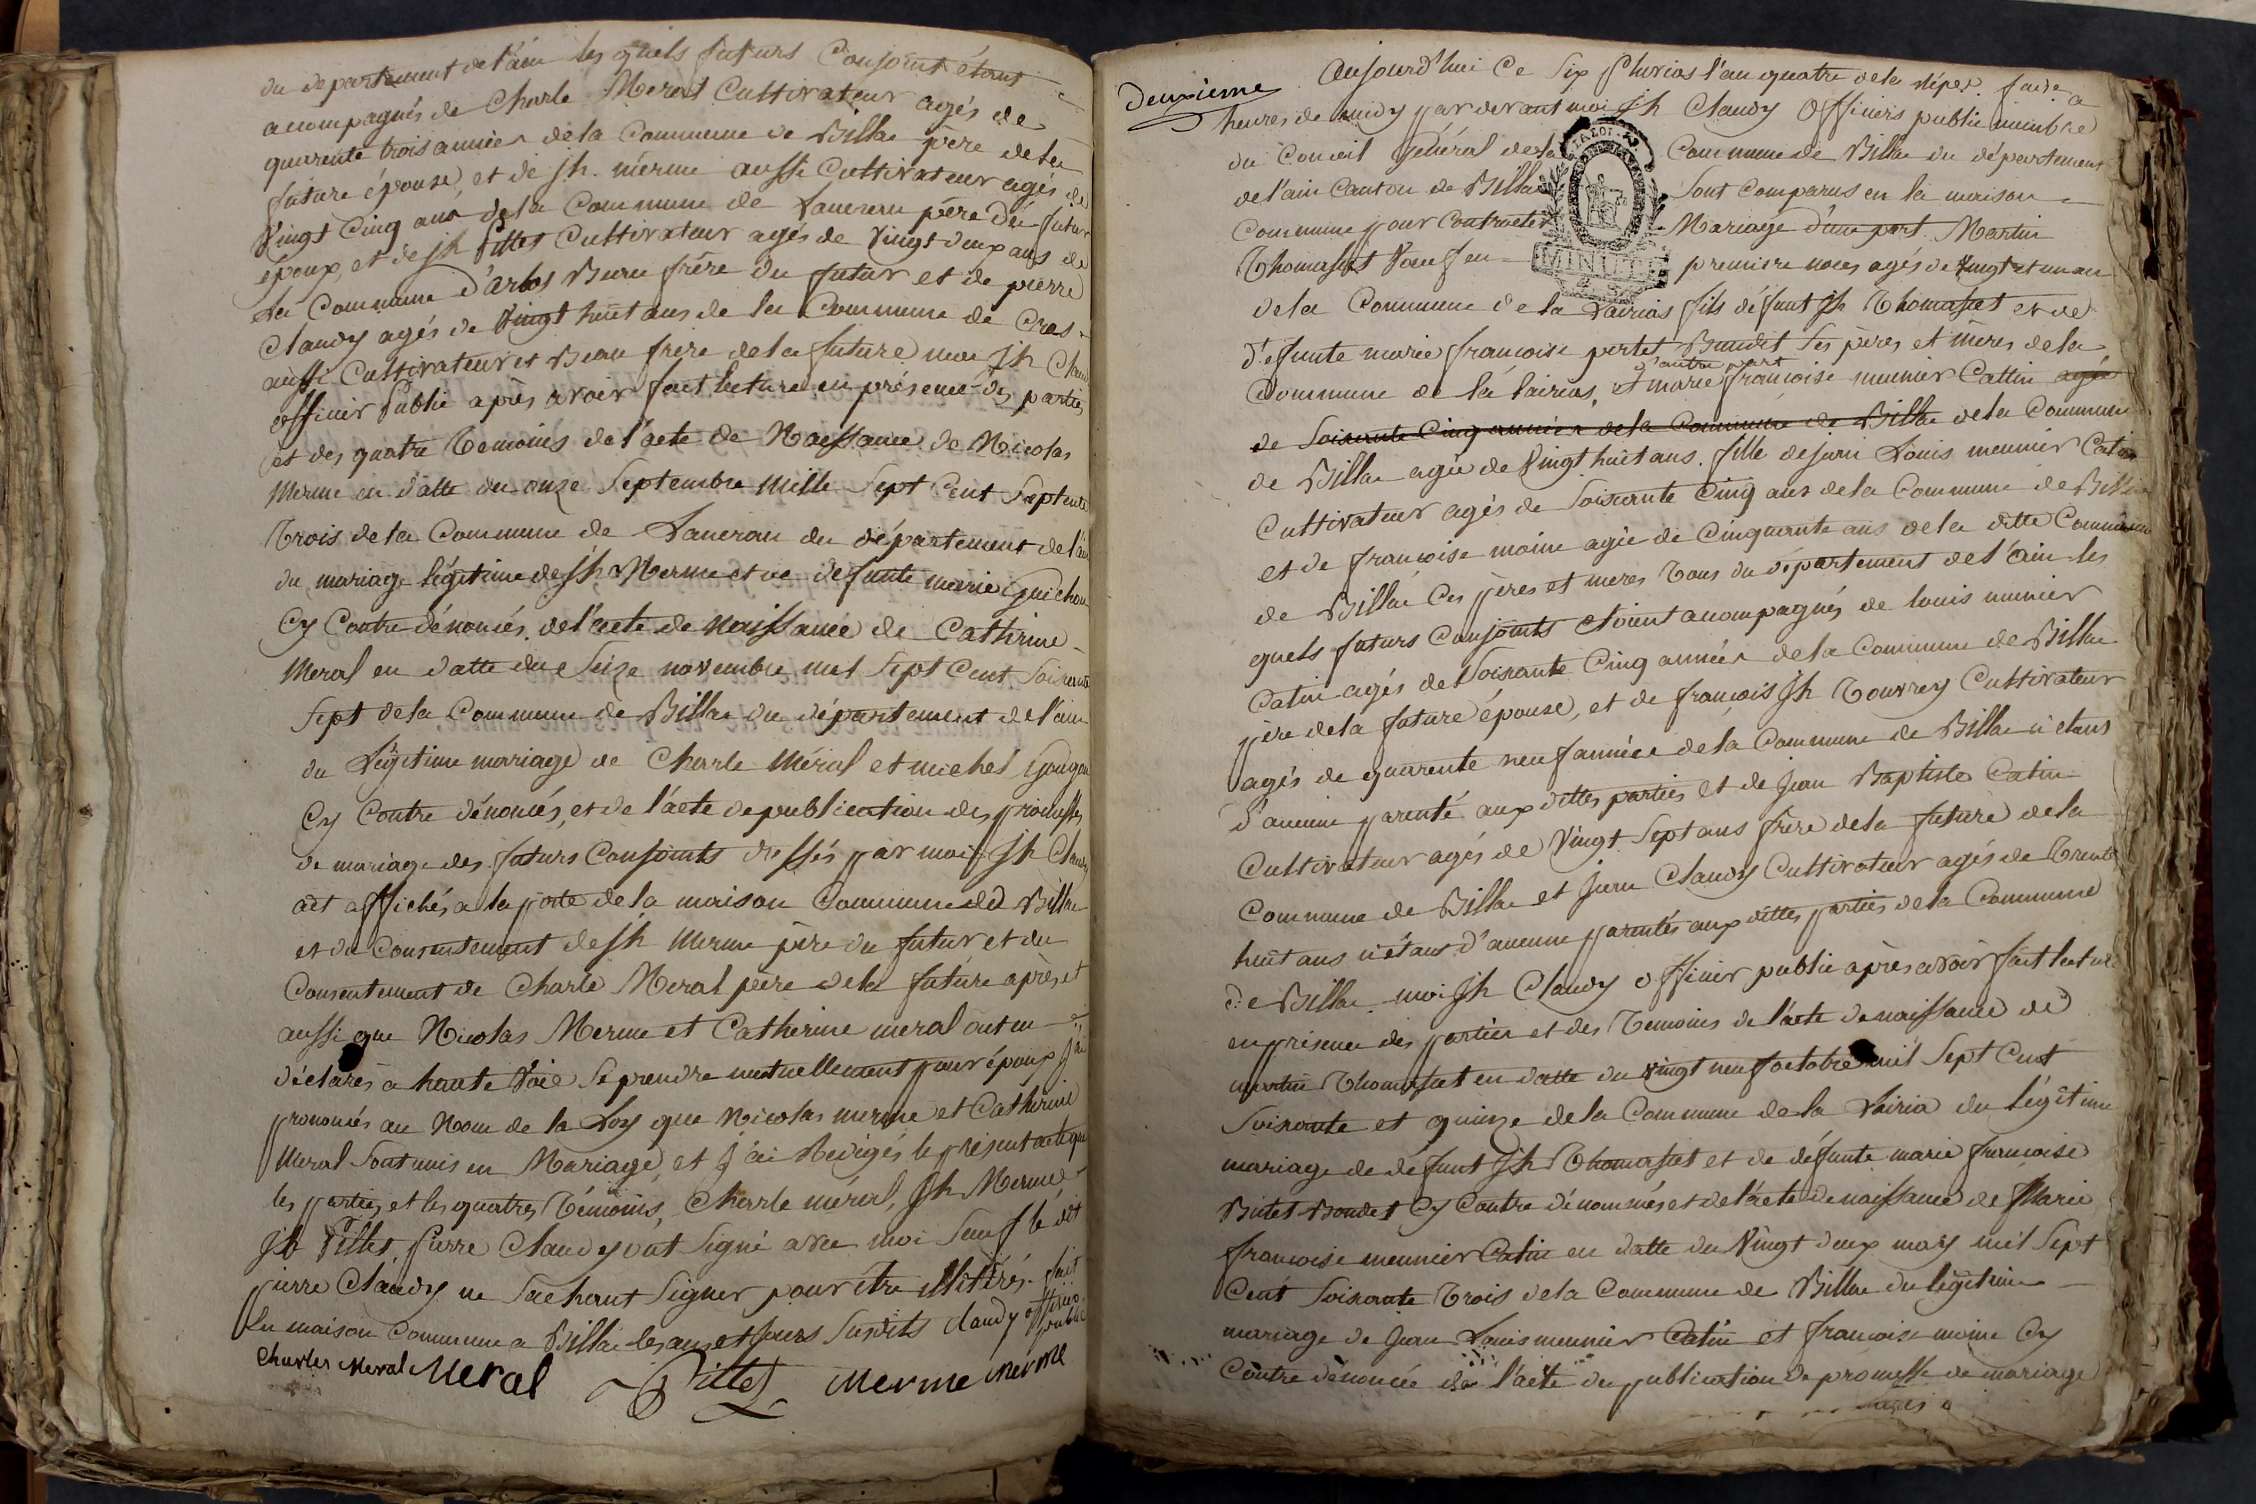 du departement de l'ain les quels futurs Conjoint étant
acompagnés de Charle Meral Cultivateur agés de
quarente trois années de la Commune de Billia père de la
future épouse, et de jh. mérme aussi Cultivateur agés de
Vingt Cinq ans de la Commune de Lancran père du futur
époux, et de jh Pillet Cultivateur agés de Vingt deux ans de
la Commune d'Arlos Beau frère du futur et de pierre
Claudy agés de Vingt huit ans de la Commune de Cras
aussi Cultivateur et Beau frère de la future moi jh Claudy
officier Public après avoir fait lecture en présence des parties
et des quatre Temoins de l'acte de Naissance de Nicolas
Merme en datte du onze Septembre Mille Sept Cent Septente
Trois de la Commune de Lancran du département de l'ain
du mariage légitime de jh Merme et de defunte marie Guichon
Cy Contre dénomés. de l'acte de Naissance de Catherine
Meral en datte du Seize novembre mil Sept Cent Soixante
Sept de la Commune de Billia du département de l'ain
du Légitime mariage de Charle Méral et michel
Cy Contre dénomés, et de l'acte de publication des promesses
de mariage des futurs Conjoints dressés par moi jh Claudy
et affichés a la porte de la maison Commune de Billia
et du Consentement de jh Merme père du futur et du
Consentement de Charle Meral père de la future après et
aussi que Nicolas Merme et Catherine meral ont eu
déclarés a haute Voie Se prendre mutuellement pour époux J'ai
prononcés au Nom de la Loy que Nicolas merme et Catherine
Meral Sont unis en Mariage, et j'ai Redigés le présent acte que
les parties, et les quatres Témoins, Charle méral, jh Merme
jh Pillet, pierre Claudy ont Signé avec moi Sauf le dit
pierre Claudy ne Sachant Signer pour être illitérés. fait
En maison Commune a Billia les an et Jours Susdits Claudy officier public
Charles Meral Meral Pillet Merme Merme
Deuxieme
Aujourd'hui Ce Six pluvias l'an quatre de la Répu. fuise a
heures de midy par devant moi jh Claudy Officiers public membre
du Conseil Général de la Commune de Billia du département
de l'ain Canton de Billia Sont Comparus en la maison
Commune pour Contracter Mariage d'une part Martin
Thomasset premiere noces agés de Vingt et un an
LA LOI
MINUTE
de la Commune de la Lairias fils défunt jh Thomasset et de
défunte marie francoise pertet Baudet Ses pères et mères de la
Commune de la lairias, et d'autre part marie francoise munier Cattin agée
de Soixante Cinq années de la Commune de Billia de la Commune
de Billia agée de Vingt huit ans. fille de jean Louis meunier Catin
Cultivateur agés de Soixante Cinq ans de la Commune de Billia
et de francoise moine agée de Cinquante ans de la ditte Commune
de Billia Ces pères et meres Tous du département de l'ain les
quels futurs Conjoints etoient acompagnés de louis munier
Catin agés de Soixante Cinq années de la Commune de Billia
père de la future épouse, et de francois jh Touvrey Cultivateur
agés de quarente neuf années de la Commune de Billia n'etant
d'aucune parenté aux dittes parties et de Jean Baptiste Catin
Cultivateur agés de Vingt Sept ans frère de la future de la
Commune de Billia et Jean Claudy Cultivateur agés de Trente
huit ans n'étant d'aucune parentés aux dittes parties de la Commune
de Billia moi jh Claudy officier public après avoir fait lecture
en présence des parties et des Temoins de l'acte de naissance de
martin Thomasset en datte du vingt neuf octobre mil Sept Cent
Soixante et quinze de la Commune de la Lairia du légitime
mariage de defunt jh Thomasset et de défunte marie francoise
Baudet Cy Contre dénommés et de l'acte de naissance de Marie
francoise meunier Catin en datte du Vingt deux may mil Sept
Cent Soixante Trois de la Commune de Billia du légitime
mariage de Jean Louis meunier Catin et francoise moine Cy
Contre dénomée de l'acte de publication de promesse de mariage